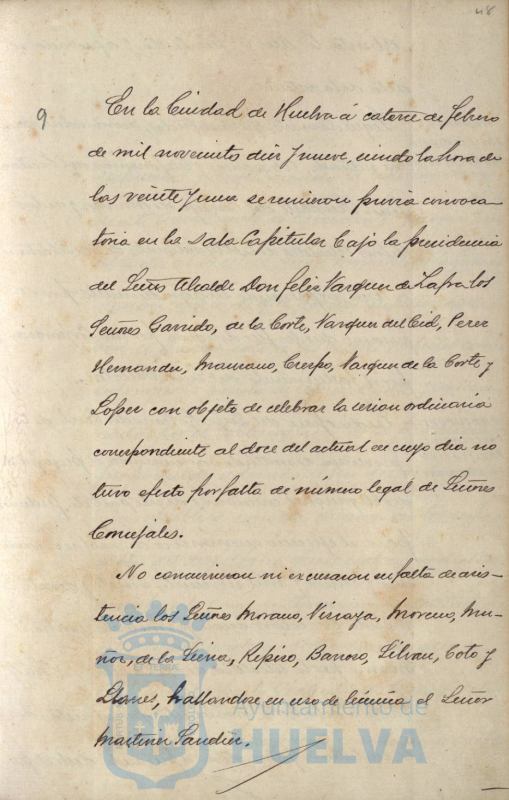 48
9
En la Ciudad de Huelva á catorce de febrero
de mil novecientos diez y nueve, siendo la hora de
las veinte y una se reunieron previa convoca-
toria en la Sala Capitular bajo la presidencia
del Señor Alcalde Don Felix Vazquez de Zafra los
Señores Garrido, de la Corte, Vazquez del Cid, Perez
Hernandez, Manzano, Crespo, Vazquez de la Corte y
Lopez con objeto de celebrar la sesion ordinaria
correspondiente al doce del actual en cuyo dia no
tuvo efecto por falta de número legal de Señores
Concejales.
No concurrieron ni excusaron su falta de asis-
tencia los Señores Morano, Vizcaya, Moreno, Mu-
ñoz, de la Reina, Repiso, Barroso, Silvan, Coto y
Llanes, hallandose en uso de licencia el Señor
Martinez Sandin.
Ayuntamiento de
HUELVA